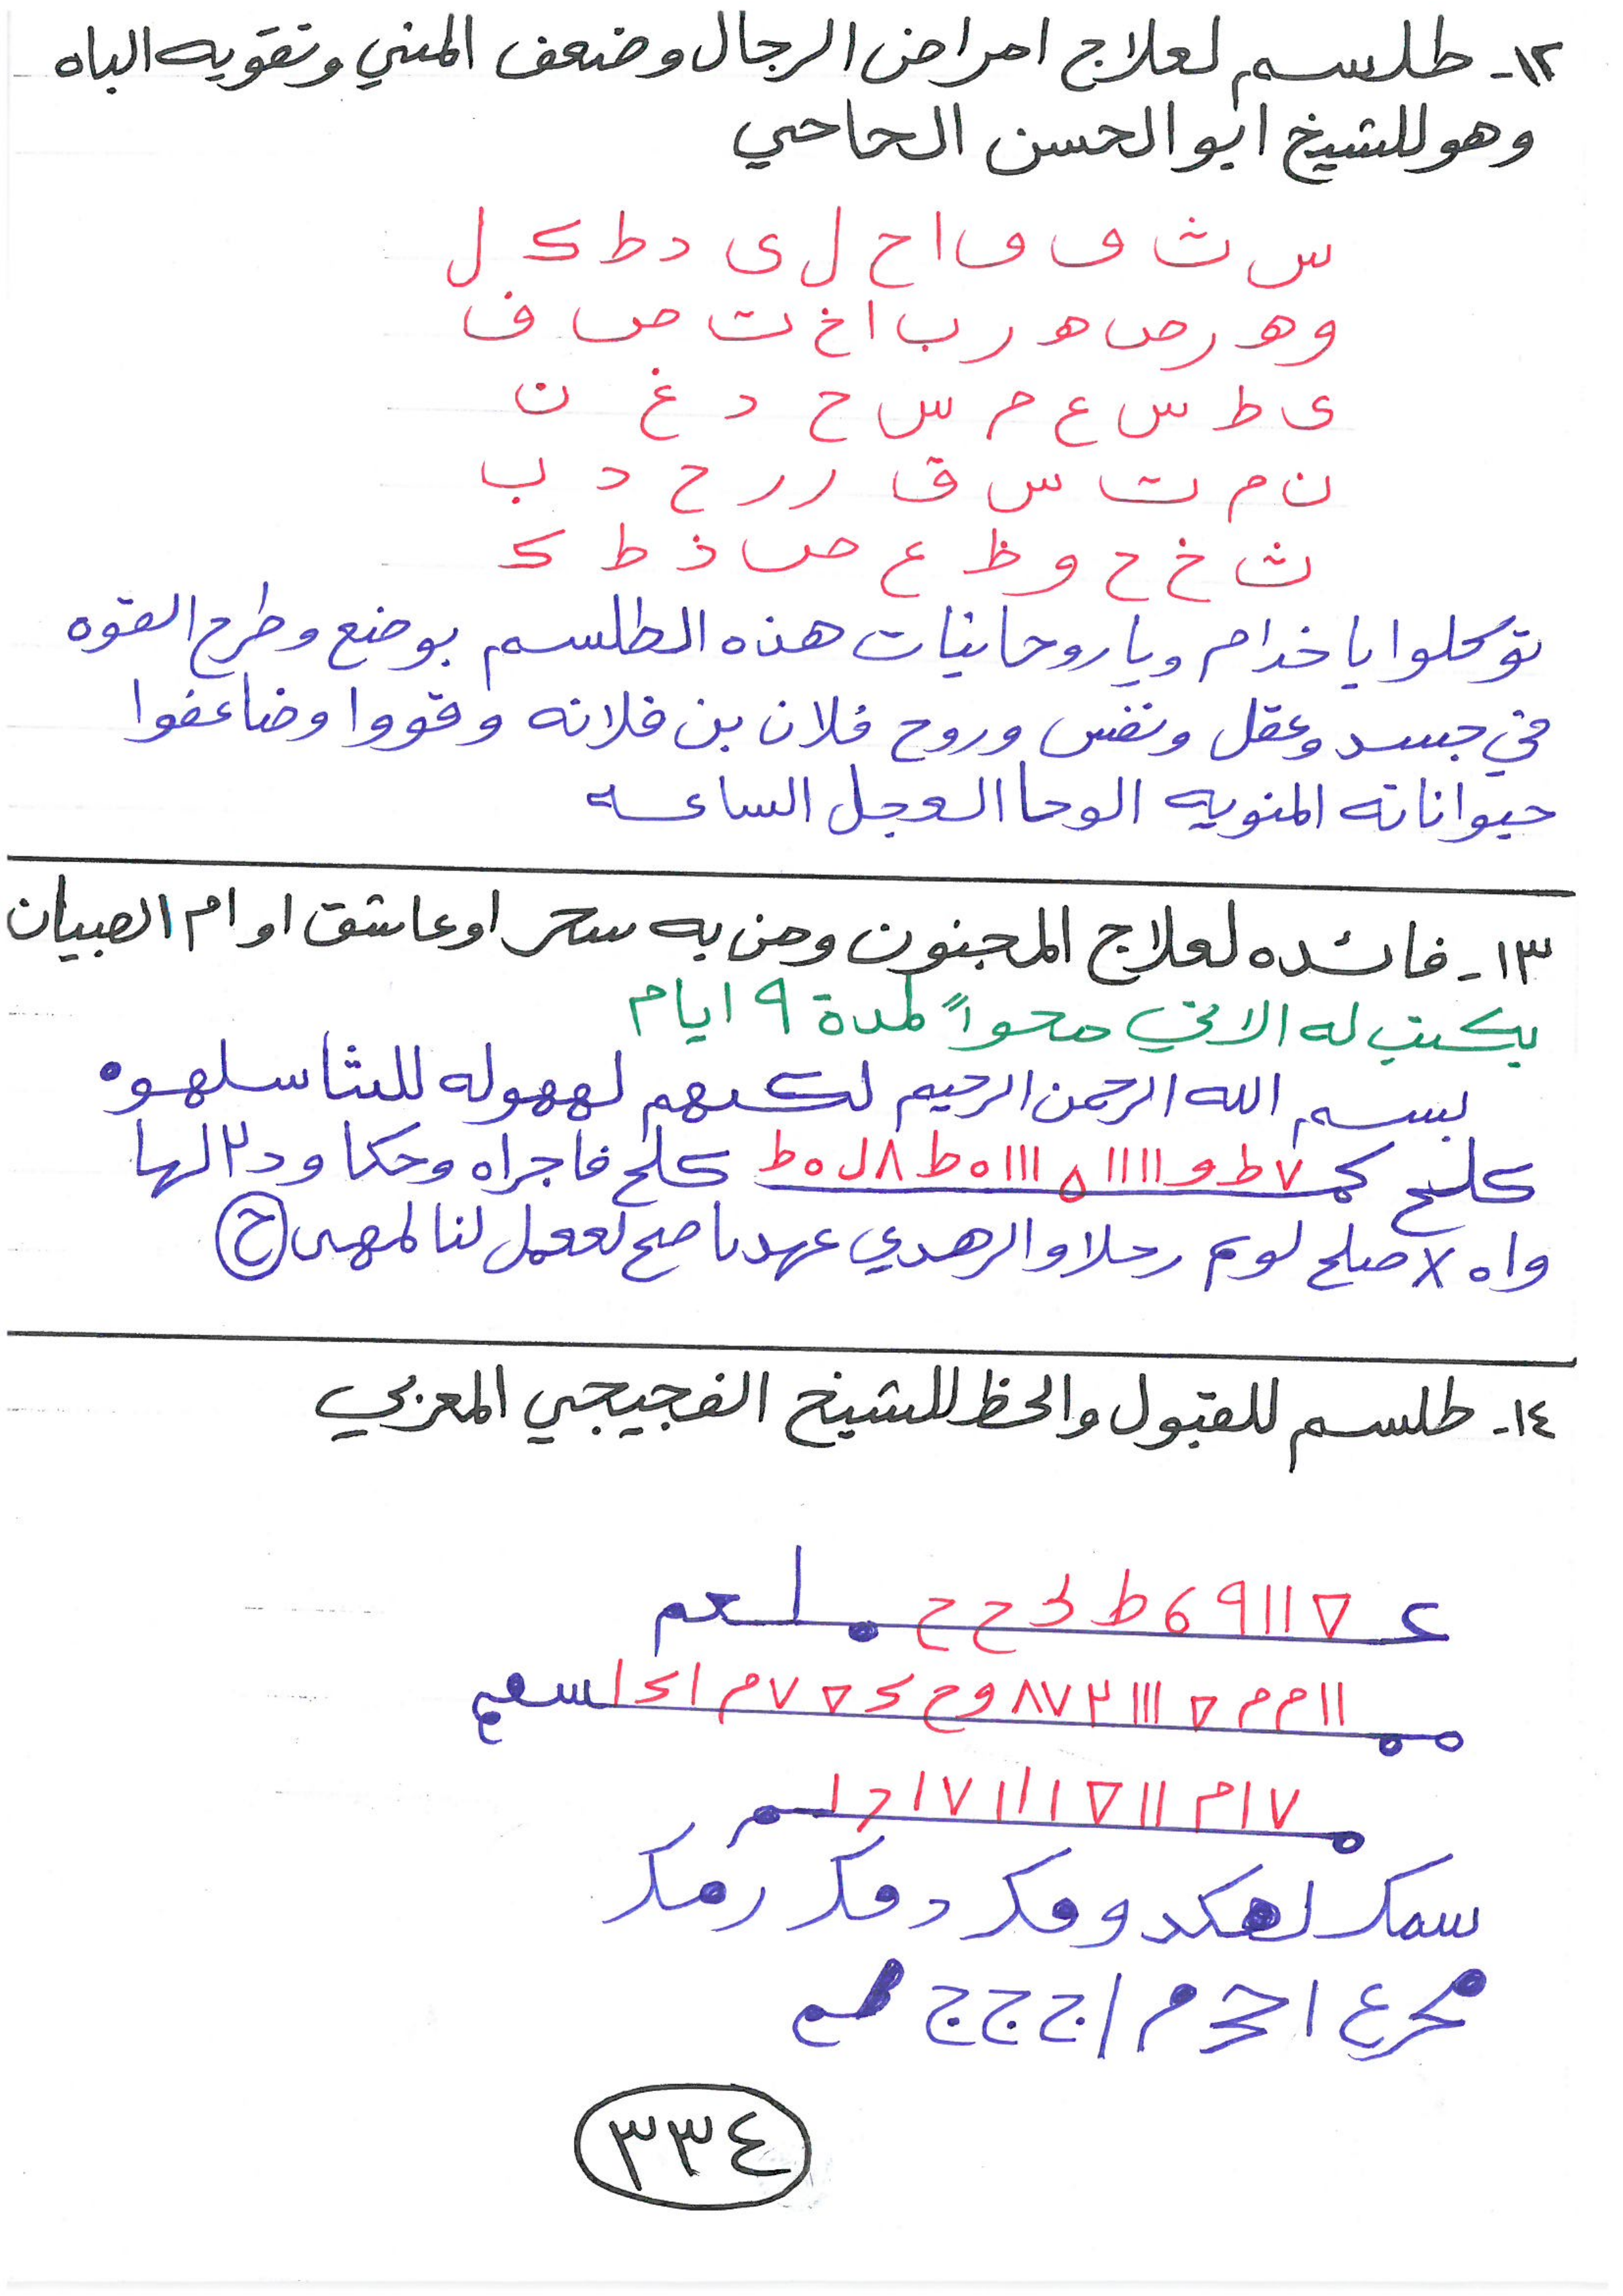 ١٢- طلسم لعلاج امراض الرجال وضعف المني وتقويه الباه
وهو للشيخ ابو الحسن الحاحي
س ث ف ف ا ح ل ى د ط ك ل
و ه ر ص ه ر ب ا خ ت ص ف
ى ط س ع م س ح د غ ن
ن م ت س ق ر ر ح د ب
ث خ ح و ظ ع ص ذ ط ك
توكلوا يا خدام ويا روحانيات هذه الطلسم بوضع وطرح القوه
في جسد وعقل ونفس وروح فلان بن فلانه وقووا وضاعفوا
حيواناته المنويه الوحا العجل الساعه
١٣- فائده لعلاج المجنون ومن به سحر او عاشق او ام الصبيان
يكتب له الاتي محواً لمدة ٩ ايام
بسم الله الرحمن الرحيم لكهم لههوله للثا سلهوه
كلح ٧ ط و ١١١١ ه ١١١ ه ط ٨ ل ه ط كلح فاجراه وحكا ود٢ لها
واه X صلح لوم رحلا والرهدي عهدنا صح لععمل لنا لمهى ح
١٤- طلسم للقبول والحظ للشيخ الفجيجي المغربي
١١ ٩ ٦ ط ك ح ح لعم
١١ م م ١١١ ٢ ٧ ٨ و ح ك ٧ م ا ك ا سعم
٧ ا م ١١ ١ ١ ١ ١ ٧ ١ د ١
سمكر لهكد وفكر دفكر رمكر
محرع ا ح م ا ج ج ج
٣٣٤